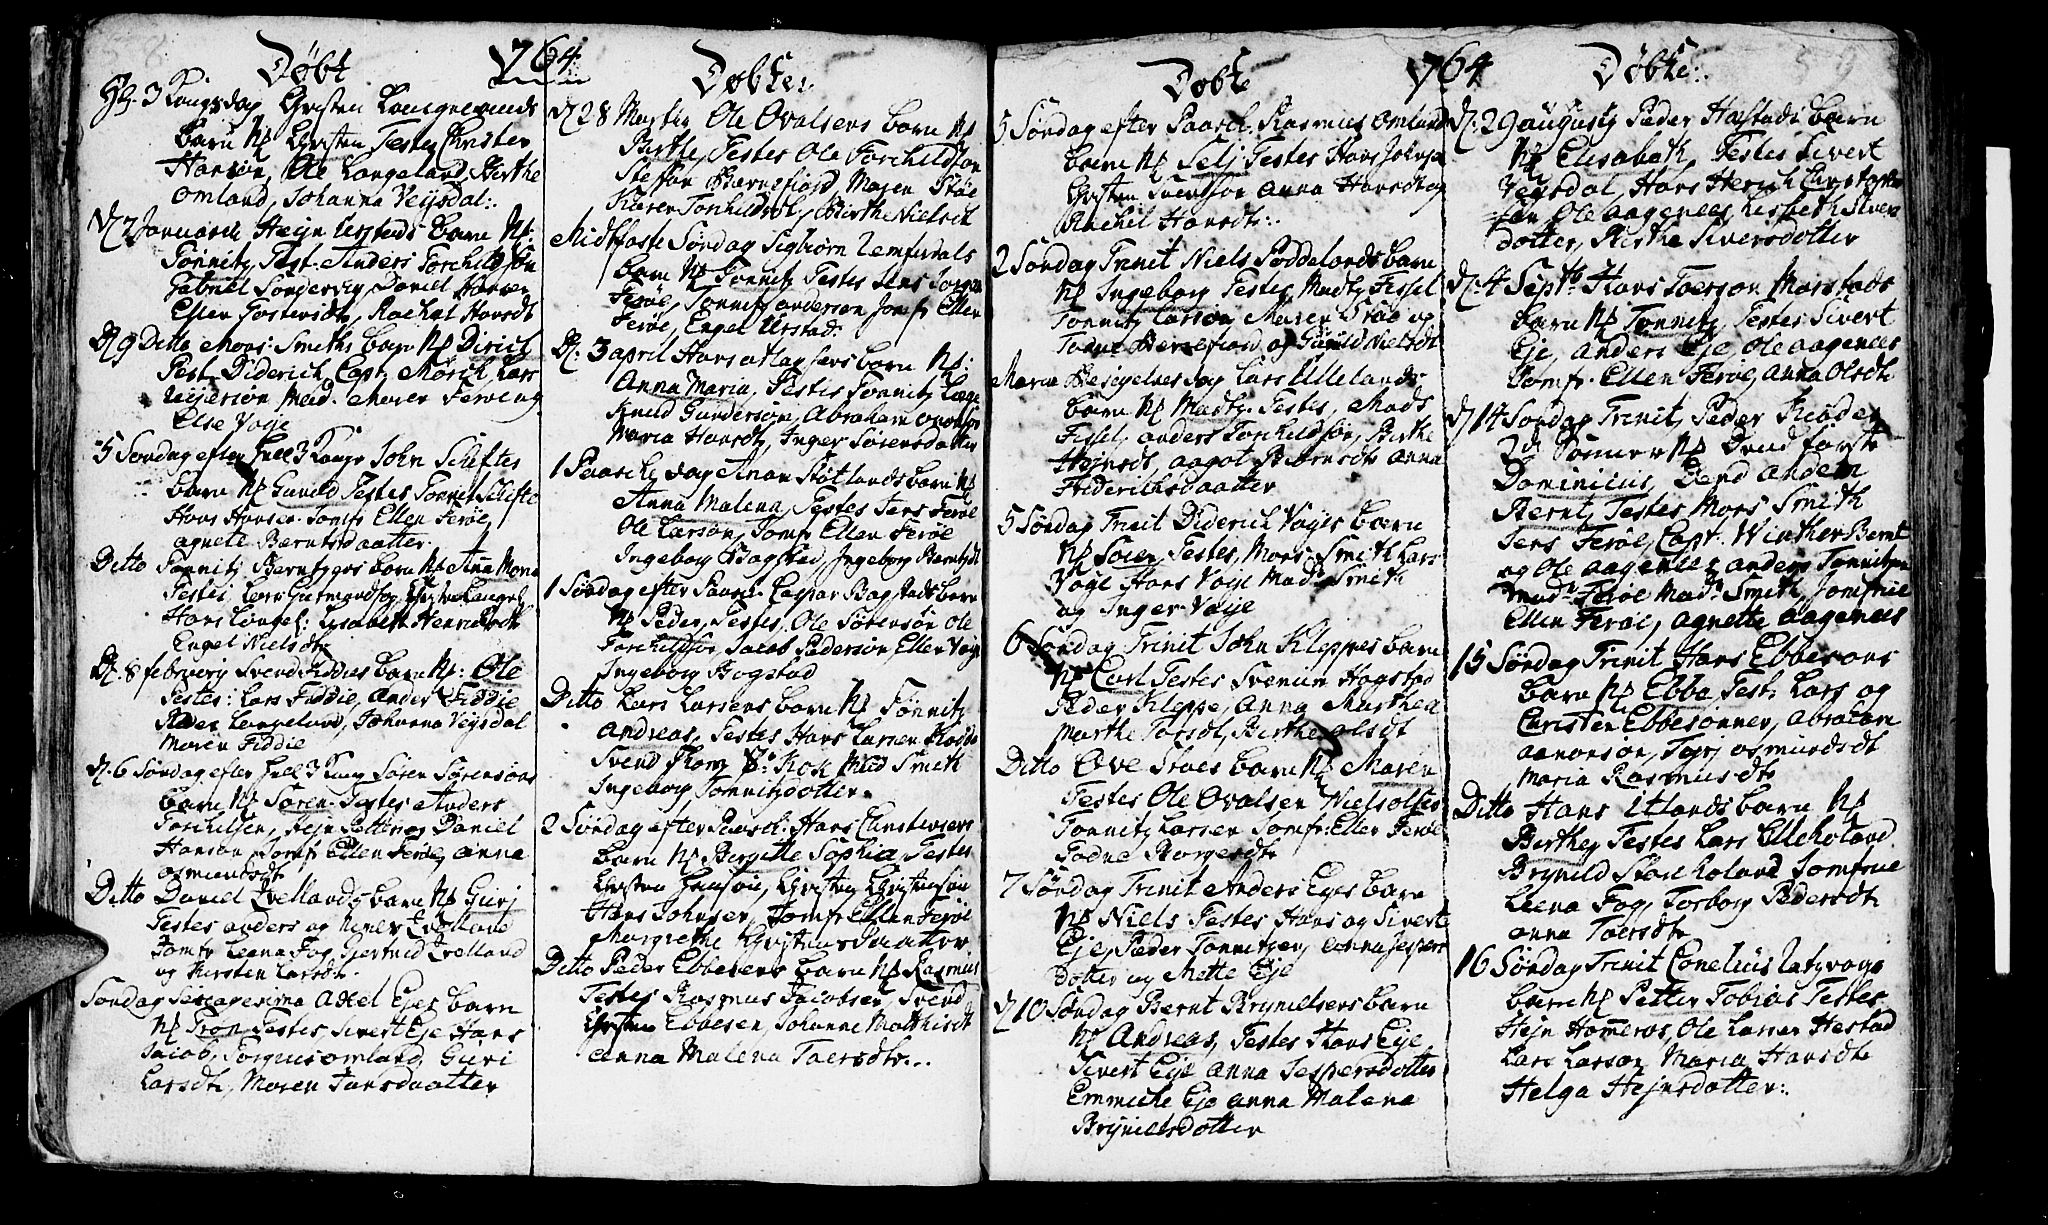 Døbt 1764
Hh. 3 Kongsdag Christen Langelands
barn N: Christen Testes Christen
Hanson, Ole Langeland, Berthe
Omland, Johanna Veysdal:
D. 2 Januarii Hejn Urstads barn N:
Tønnitz, Test. Anders Torchildsøn
Gabriel Sonderviig, Daniel Hansen
Ellen Gostevsdt, Rachel Hansdt
D. 9 Ditto Mons: Smiths barn N: Dirich
Test. Diderich, Capt. Mörch, Lars
Mad. Maren Ferøe og
Else Voje
5 Søndag efter hell 3 Kong John Schiftes
barn N: Gunild Testes Tønnis Schifte
Hans Hansen Jomfr Ellen Ferøe,
agnete Berntsdaatter.
Ditto Tønnitz Berntzens barn N: Anna Maria
Testes: Lars Gutmandsøn,
Hans Langel: Lisabeth Henrichsdt
Engel Nielsdt
D. 8 february Svend Fiddies barn N: Ole
Testes: Lars Fiddie, Anders Fiddie
Langeland, Johanna Veysdal
Maren Fiddie
D. 6 Søndag efter hell 3 Kong Søren Sørensøns
barn N: Søren Testes Anders
Torchilsen, Hejn Daniel
Hanson Jomfr Ellen Ferøe, anna
osmundsdt
Ditto Daniel Qvellands barn N: Gurj
Testes anders og Qvelland
Jomfr Leena Fog Giertrud Qvelland
og Kirsten Larsdt.
Søndag Sexagesima Axel Ejes barn
N: Tron Testes Sivert Eje Hans
Jacob, Torgius omland, Guri
Larsdt, Maren Jansdaatter
Døbte:
D. 28 Martii Ole Ovalsens barn N:
Birthe, Testes Ole Torchildsøn
Steffen Barnefiord, Maren Støe
Karen Torchildsdt, Birthe Nielsdt
Midtfaste Søndag Sigbiørn
barn N: Tønnitz Testes Jens
Ferøe, Tønnis anderson Jomfr Ellen
Ferøe, Engel Urstad:
D. 3 april Hans atlaksens barn N:
Anna Maria, Testes Tønnitz
Knud Gunderson, Abraham
Maria Hansdt, Inger Sørensdatter
1 Paasche dag Anon Støtlands barn N:
Anna Malena, Testes Jens Ferøe
Ole Larson, Jomfr Ellen Ferøe
Ingeborg Bagstad, Ingeborg Berntzdt
1 Søndag efter Paasch: Caspar Bagstads barn
N: Peder, Testes, Ole Sørenson Ole
Torchildsøn, Jacob Pedersøn Ellen Voje
Ingeborg Bogstad
Ditto Lars Larsens barn N: Tønnitz
Andreas, Testes Hans Larsen
Svend Kok Mad Smith
Ingeborg Tønnitzdotter.
2 Søndag efter Paasch: Hans Christensens
barn N: Birgitte Sophia, Testes
Christen Hanson, Christen Christenson
Hans Johnsen, Jomfr Ellen Ferøe
Margrethe Christensdaatter
Ditto Peder Ebbesens barn N: Rasmus
Testes Rasmus Jacobsen Svend
Christen Ebbesen, Johanne Matthisdt
Anna Malena Taersdt...
Døbte 1764
5 Søndag efter Paasch. Rasmus Omland
barn N: Selj Testes Hans Johnsøn
Christen Svensson Anna Hansdt og
Rachel Hansdt:
2 Søndag Trinit Niels Poddelands barn
N: Ingeborg Testes Madtz Fissel
Tønnitz Larson Maren Støe og
Todne Bernefiord og Gunild Nielsdt
Maria Besøgelses dag Lars Ullelands
barn N: Madtz. Testes, Mads
Fissel, anders Torchildsøn, Birthe
Hejnsdt, aagot Biørnsdt anna
Friderichsdaatter
5 Søndag Trinit Diderich Vojes barn
N: Soren, Testes, Mons: Smith Lars
Voje Hans Voje Mad: Smith
og Inger Voje
6 Søndag Trinit John Kleppes barn
N: Carl Testes Svenum Hogstad
Peder Kleppe, Anna Marthea
Marthe Torsdt, Birthe olsdt
Ditto Ove Støes barn N: Maren
Testes Ole Ovalsen Niels olsen
Tønnitz Larsen Jomfr: Ellen Ferøe
Todne Borgersdt
7 Søndag Trinit Anders Ejes barn
N: Niels Testes Hans og Sivert
Eje, Peder Tønnitzen, Anna Jespers
dotter og Mette Eje
D. 10 Søndag Bernt Brynelsens barn
N: Andreas, Testes Hans Eje,
Sivert Eje anna Jespersdotter
Emmiche Eje anna Malena
Brynielsdotter
Døbte:
D. 29 augusty Peder Hastads barn
N: Elisabeth, Testes Sivert
Veysdal, Hans Henrich
søn Ole aagenes Lisbeth Siverts
dotter, Birthe Siversdotter
D. 4 Septb Hans Toerson Morstads
barn N: Tønnitz, Testes Sivert
Eje, anders Eje, Ole aagenes
Jomfr. Ellen Ferøe, Anna Olsdt
D. 14 Søndag Trinit, Peder Kiøder
2de Sønner N: Dend første
Dominicus, Dend anden
Bernt, Testes Mons Smith
Jens Ferøe, Capt. Winther Bernt
og Ole aagenes anders Tønnitzen
Mad: Ferøe Mad: Smith, Jomfrue
Ellen Ferøe, agnette aagenes
15 Søndag Trinit Hans Ebbesons
barn N: Ebba Test: Lars og
Christen Ebbesønner, Abraham
aanonson, Torj osmundsdt
Maria Rasmusdt
Ditto Hans Itlands barn N:
Berthe, Testes Lars Lilleholand
Brynild Storholand Jomfrue
Leena Fog, Torborg Pedersdt
anna Taersdt
16 Søndag Trinit Conelius
barn N: Petter Tobias Testes
Hejn Homeros, Ole Larsen Hestad
Lars Larson, Maria Hansdt
Helga Hejnsdotter: